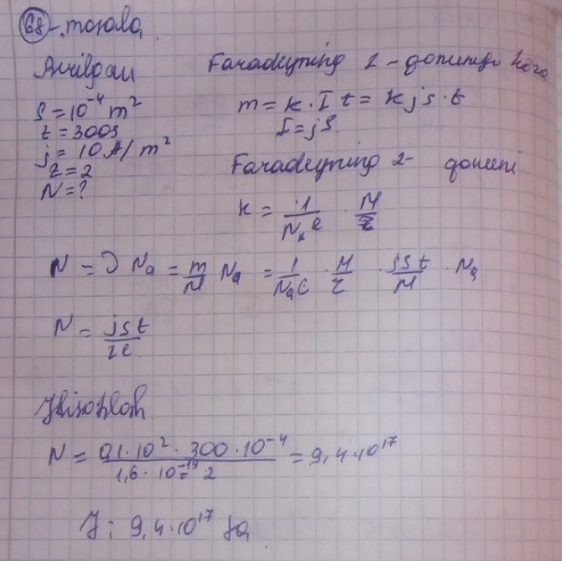 68-masala
Berilgan
S = 10⁻⁴ m²
t = 300s
j = 10 A/m²
z = 2
N = ?
Faradeyning 1-qonuniga ko'ra
m = k · I t = k j s · t
I = jS
Faradeyning 2- qonuni
k = 1/(Nₐe) · M/z
N = ν Nₐ = m/M Nₐ = 1/(Nₐe) · M/z · jSt/M · Nₐ
N = jst/ze
Hisoblash
N = (0,1·10²·300·10⁻⁴)/(1,6·10⁻¹⁹·2) = 9,4·10¹⁷
J: 9,4·10¹⁷ ta